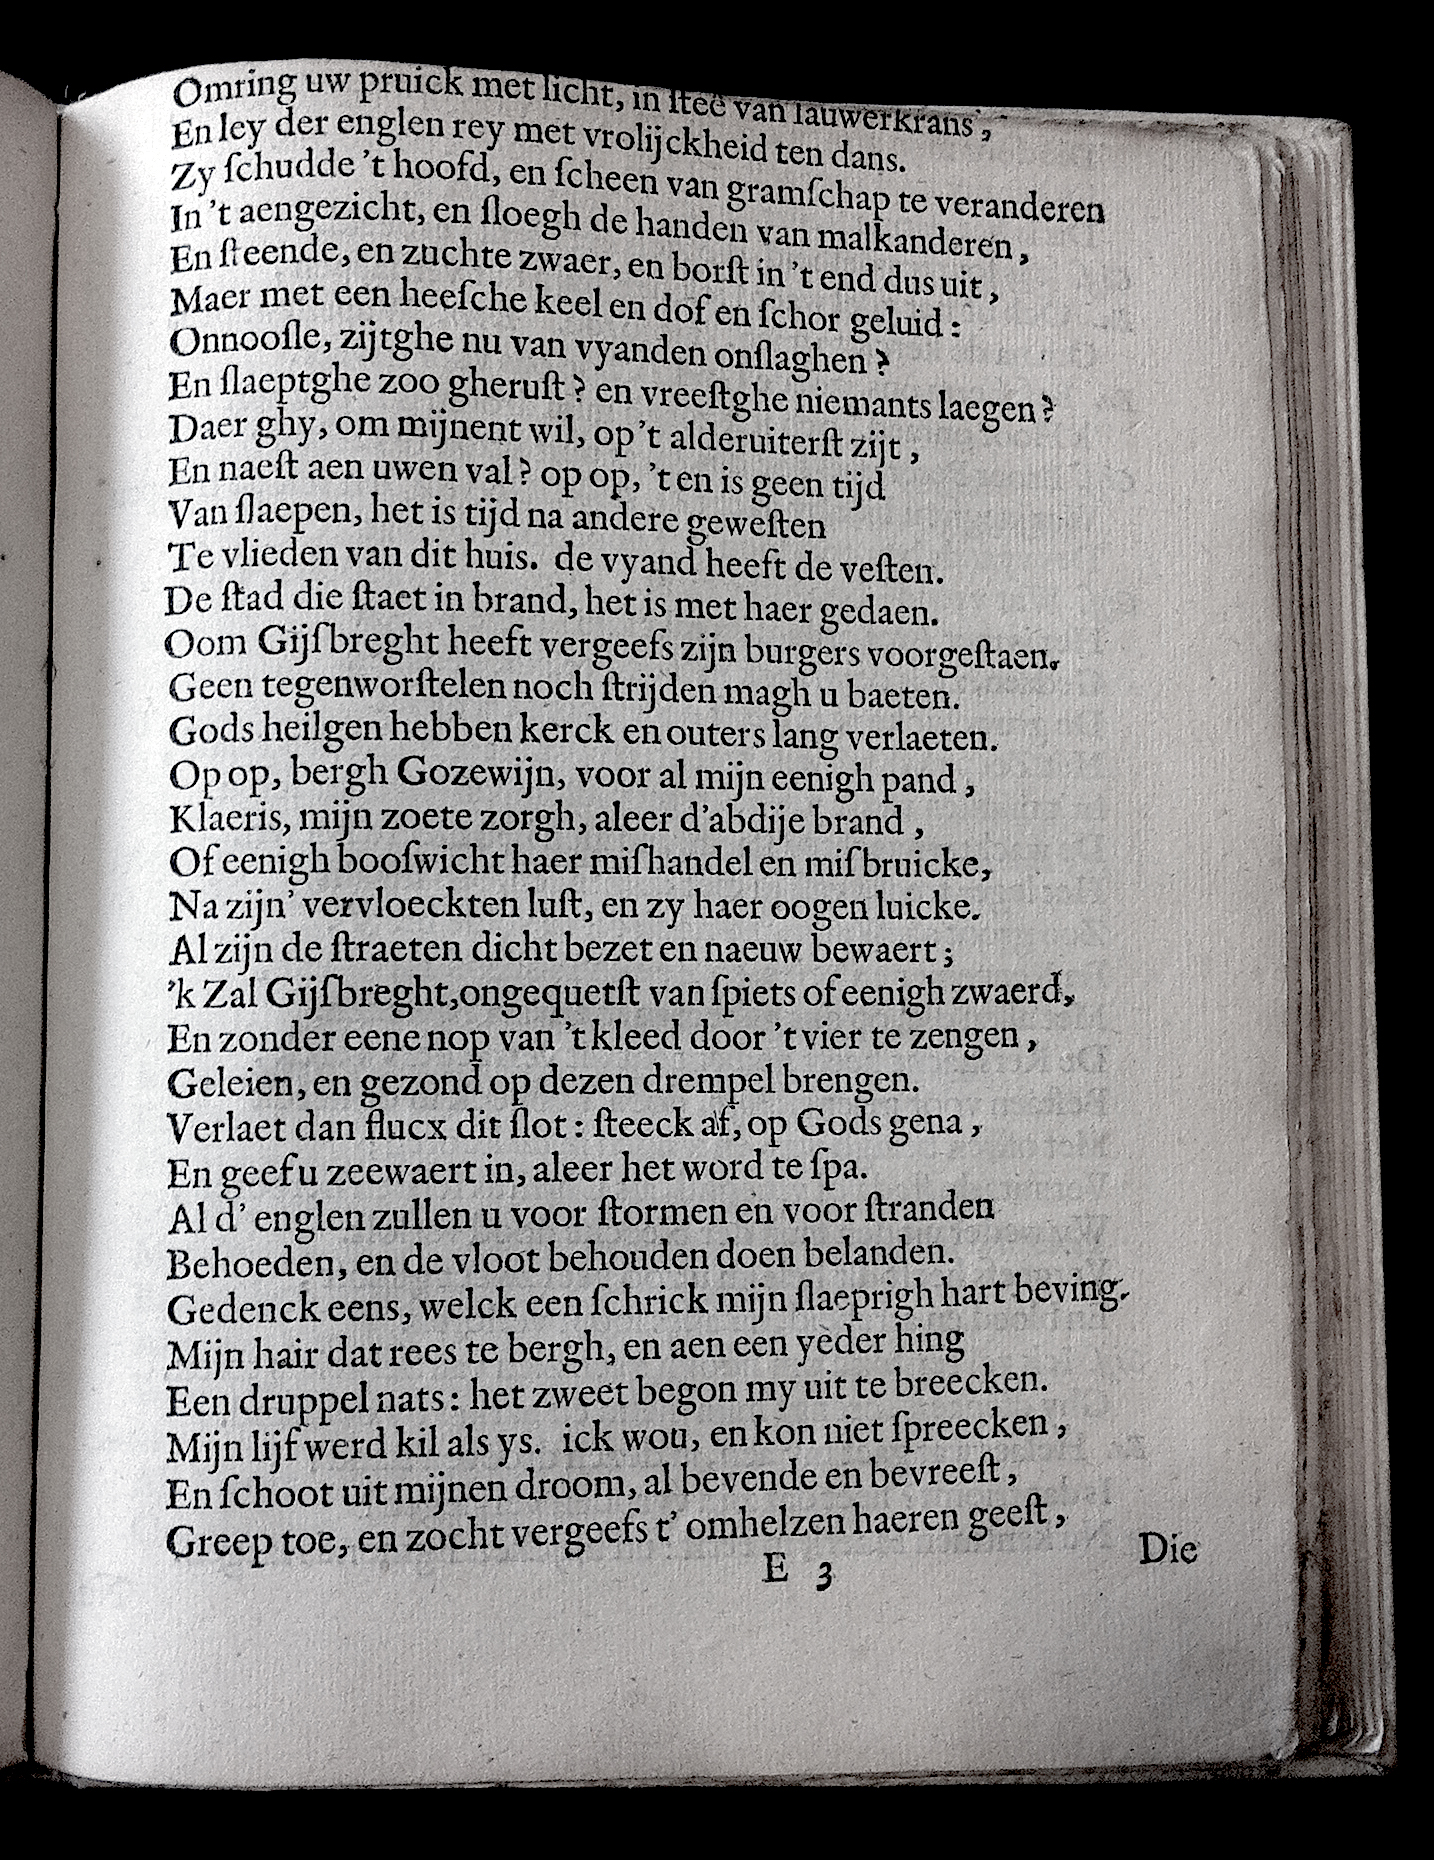 Omring uw pruick met licht, in ſteê van lauwerkrans,
En ley der englen rey met vrolijckheid ten dans.
Zy ſchudde 't hoofd, en ſcheen van gramſchap te veranderen
In 't aengezicht, en ſloegh de handen van malkanderen,
En ſteende, en zuchte zwaer, en borſt in 't end dus uit,
Maer met een heeſche keel en dof en ſchor geluid:
Onnooſle, zijtghe nu van vyanden onſlaghen?
En ſlaeptghe zoo gheruſt? en vreeſtghe niemants laegen?
Daer ghy, om mijnent wil, op 't alderuiterſt zijt,
En naeſt aen uwen val? op op, 't en is geen tijd
Van ſlaepen, het is tijd na andere geweſten
Te vlieden van dit huis. de vyand heeft de veſten.
De ſtad die ſtaet in brand, het is met haer gedaen.
Oom Gijſbreght heeft vergeefs zijn burgers voorgeſtaen.
Geen tegenworſtelen noch ſtrijden magh u baeten.
Gods heilgen hebben kerck en outers lang verlaeten.
Op op, bergh Gozewijn, voor al mijn eenigh pand,
Klaeris, mijn zoete zorgh, aleer d'abdije brand,
Of eenigh booſwicht haer miſhandel en miſbruicke,
Na zijn' vervloeckten luſt, en zy haer oogen luicke.
Al zijn de ſtraeten dicht bezet en naeuw bewaert;
'k Zal Gijſbreght, ongequetſt van ſpiets of eenigh zwaerd,
En zonder eene nop van 't kleed door 't vier te zengen,
Geleien, en gezond op dezen drempel brengen.
Verlaet dan flucx dit ſlot: ſteeck af, op Gods gena,
En geef u zeewaert in, aleer het word te ſpa.
Al d' englen zullen u voor ſtormen en voor ſtranden
Behoeden, en de vloot behouden doen belanden.
Gedenck eens, welck een ſchrick mijn ſlaeprigh hart beving.
Mijn hair dat rees te bergh, en aen een yeder hing
Een druppel nats: het zweet begon my uit te breecken.
Mijn lijf werd kil als ys. ick wou, en kon niet ſpreecken,
En ſchoot uit mijnen droom, al bevende en bevreeſt,
Greep toe, en zocht vergeefs t' omhelzen haeren geeſt,
E 3
Die